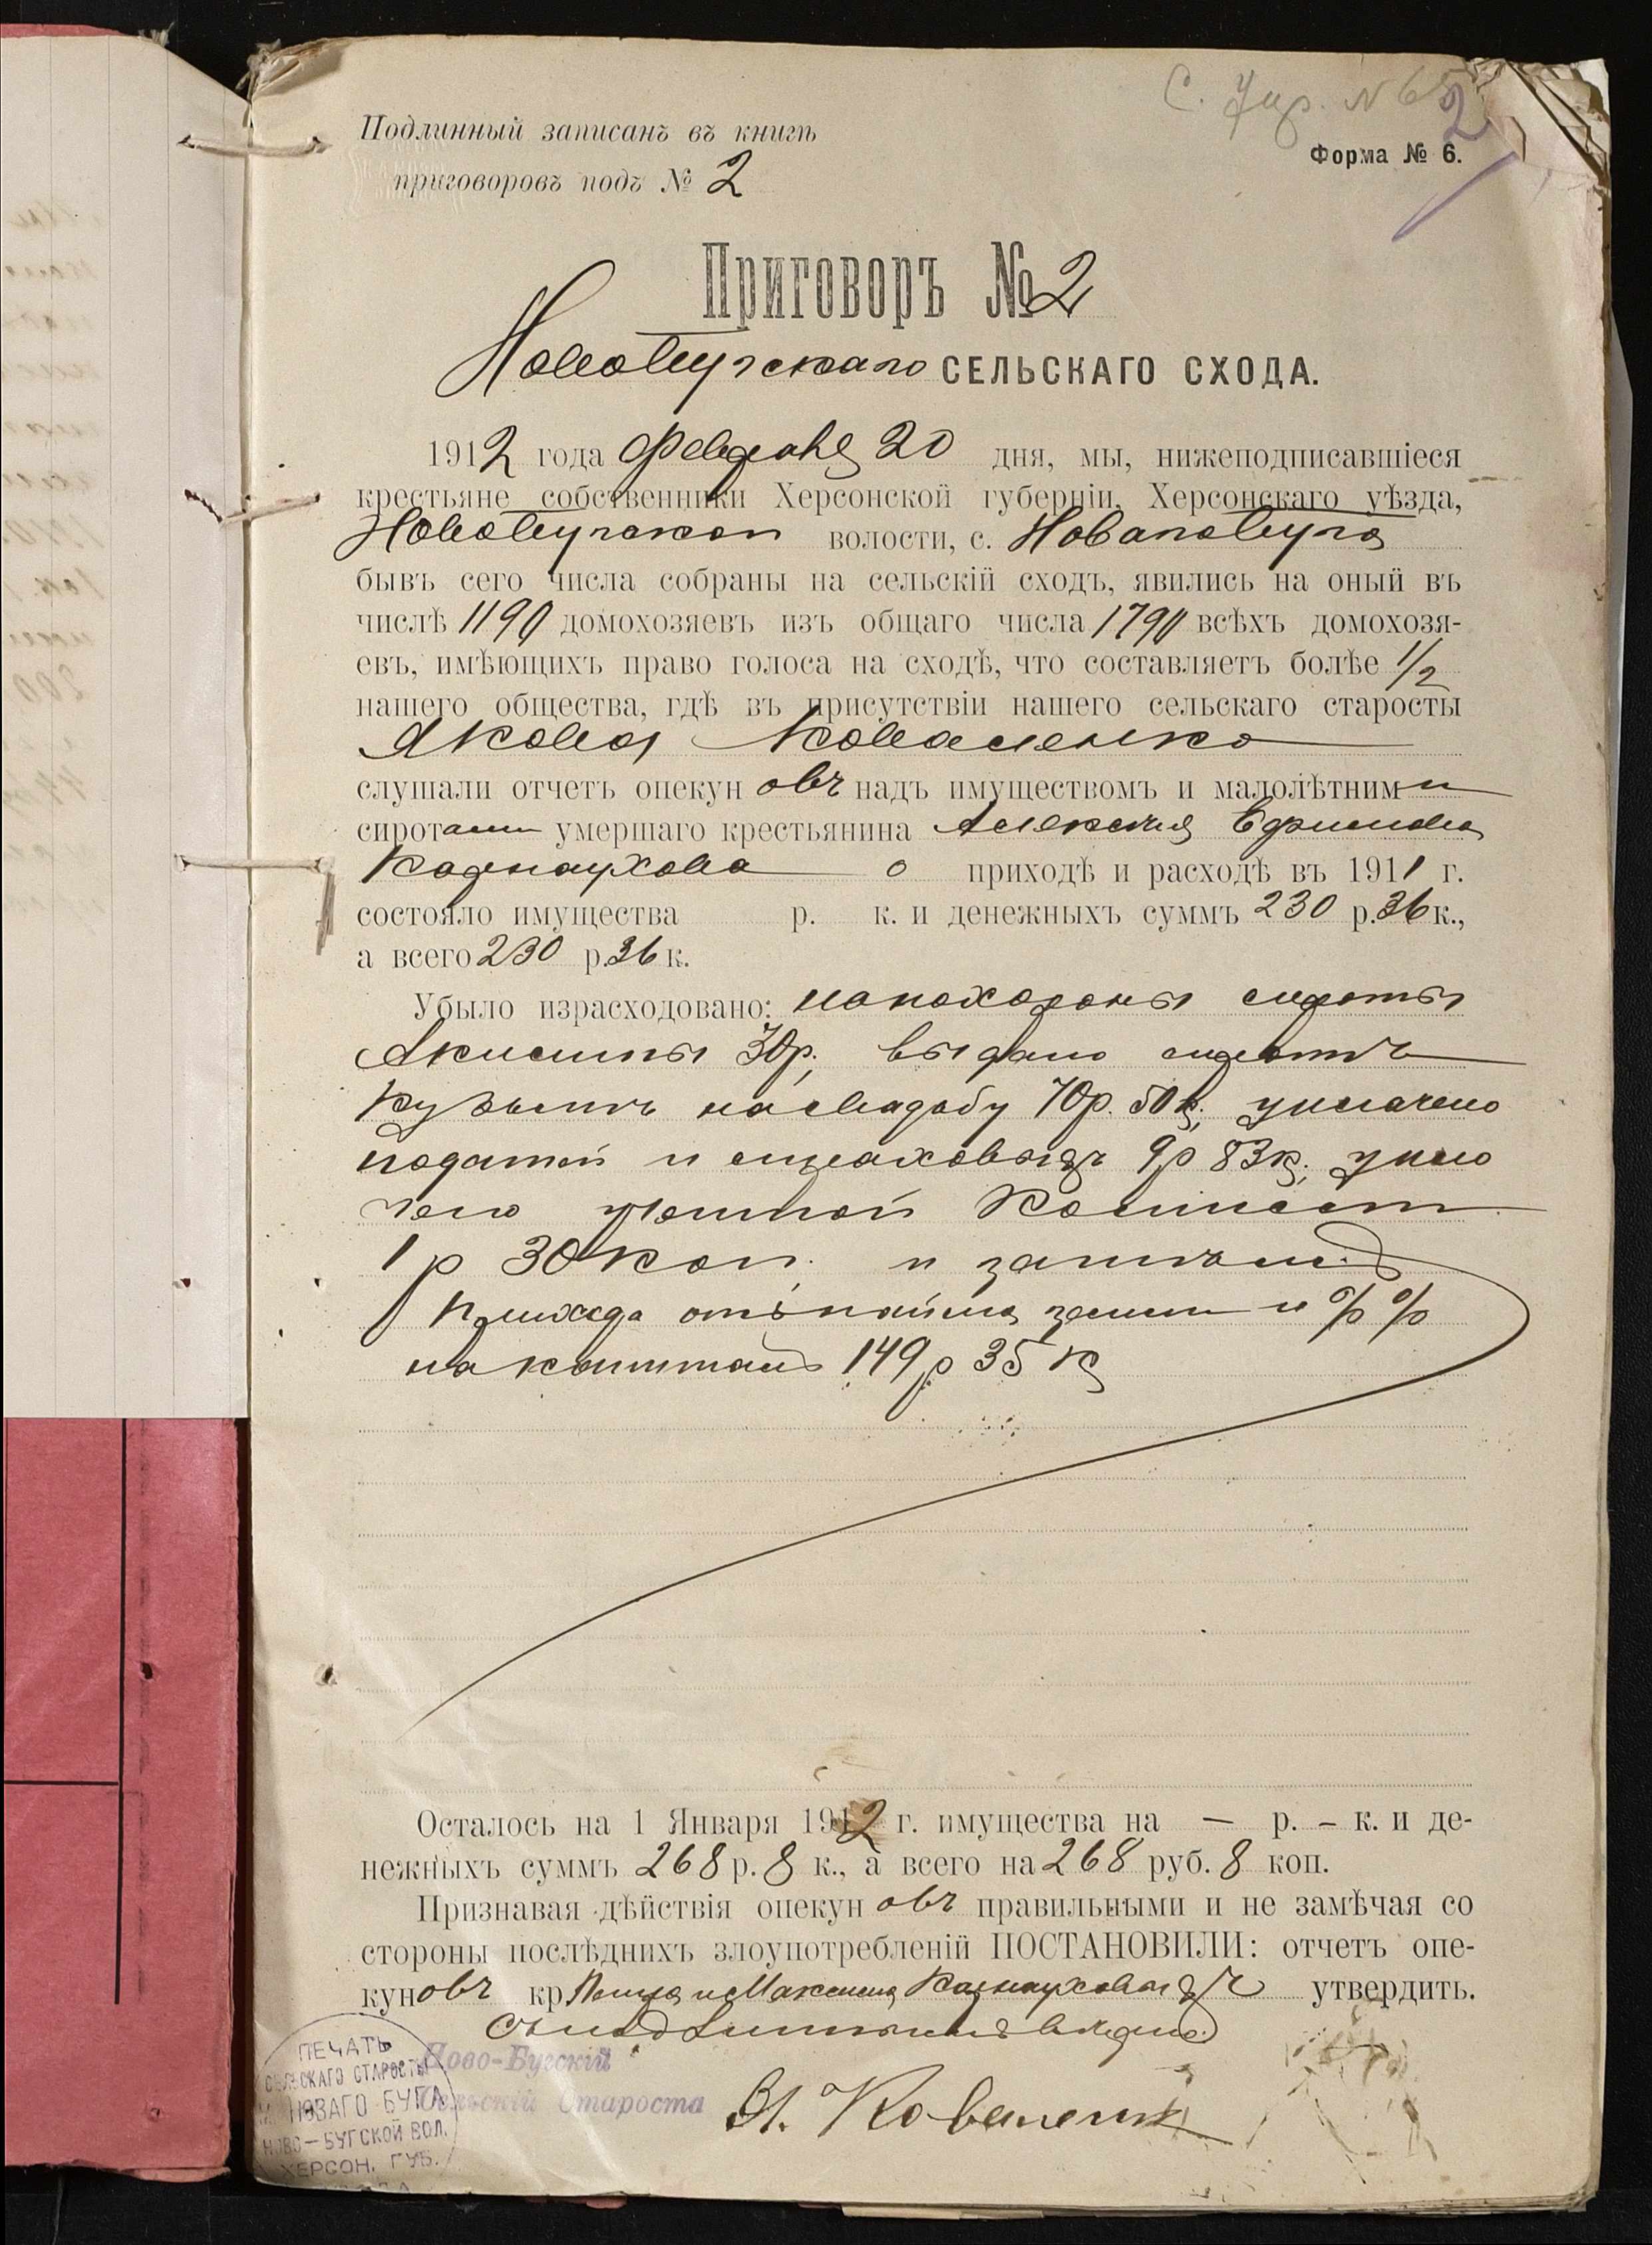 С. Учр. N 65
2
Подлинный записанъ въ книгѣ
Форма № 6.
приговоровъ подъ № 2
Приговоръ № 2
Новобугскаго СЕЛЬСКАГО СХОДА.
1912 года Февраля 20 дня, мы, нижеподписавшіеся
крестьяне собственники Херсонской губерніи, Херсонскаго уѣзда,
Новобугской волости, с. Новаго Буга
бывъ сего числа собраны на сельскій сходъ, явились на оный въ
числѣ 1190 домохозяевъ изъ общаго числа 1790 всѣхъ домохозя-
евъ, имѣющихъ право голоса на сходѣ, что составляетъ болѣе 1/2
нашего общества, гдѣ въ присутствіи нашего сельскаго старосты
Якова Коваленко
слушали отчетъ опекуновъ надъ имуществомъ и малолѣтними
сиротами умершаго крестьянина Алексѣя Ефимова
Карнаухова о приходѣ и расходѣ въ 1911 г.
состояло имущества р. к. и денежныхъ суммъ 230 р. 36 к.,
а всего 230 р. 36 к.
Убыло израсходовано: на похороны сироты
Акилины 30 р.; выдано сиротѣ
Кузьмѣ на свадьбу 70 р. 50 к.; уплачено
податей и страховыхъ 9 р 83 к.; упла
чено учетной Комисіи
1 р 30 коп. и затѣмъ
прихода отъ найма земли и % %
на капиталъ 149 р 35 к
Осталось на 1 Января 1912 г. имущества на — р. - к. и де-
нежныхъ суммъ 268 р. 8 к., а всего на 268 руб. 8 коп.
Признавая дѣйствія опекуновъ правильными и не замѣчая со
стороны послѣднихъ злоупотребленій ПОСТАНОВИЛИ: отчетъ опе-
куновъ кр и Максима Карнауховыхъ утвердить.
Съ подлиннымъ вѣрно:
Ново-Бугскій
Сельскій Староста Я. Коваленко
ПЕЧАТЬ
СЕЛЬСКАГО СТАРОСТЫ
НОВАГО БУГА
НОВО-БУГСКОЙ ВОЛ.
ХЕРСОН. ГУБ.